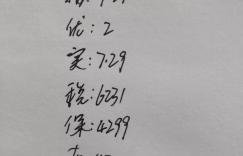 优:2
实:7.29
税:6231
保:4299